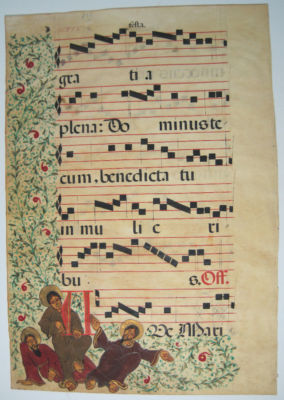 gra ti a
plena: Do minus te
cum. benedicta tu
in mu li e ri
bu s. Off.
Ve Mari